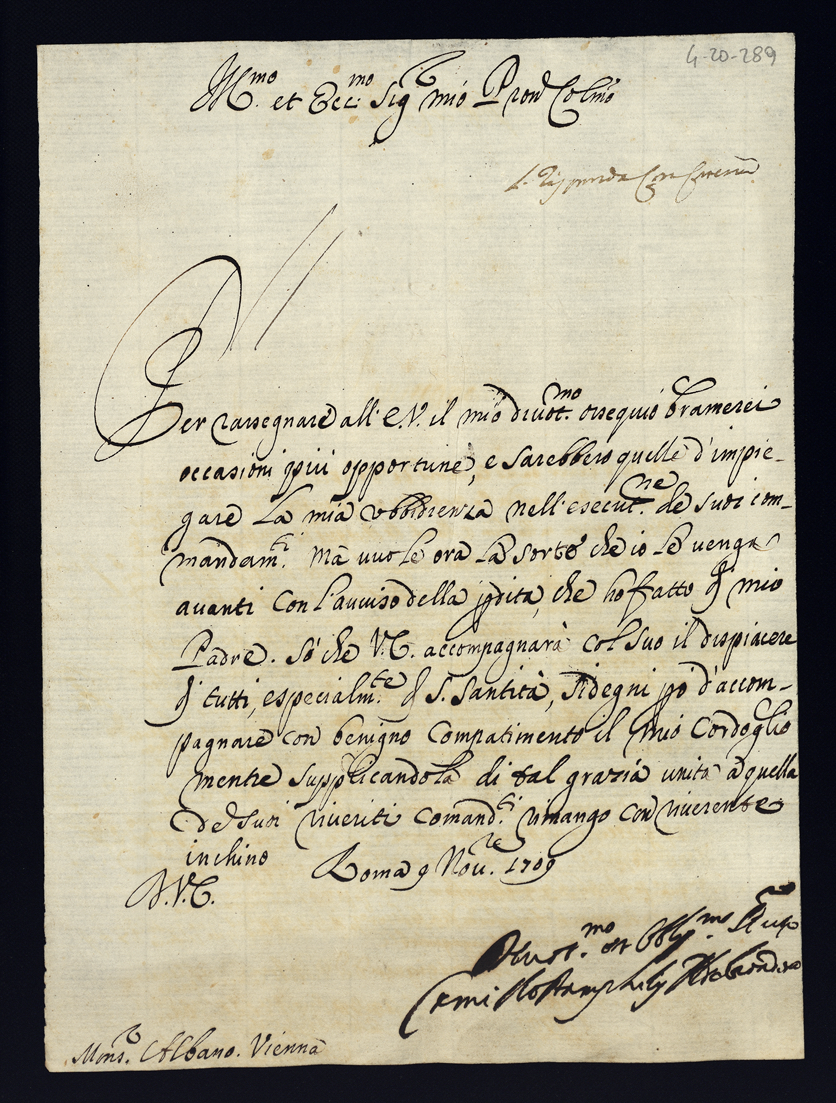 4-20-289
Ill.mo et Ecc.mo Sig.r mio Pron Colmo
Si risponda
Per rassegnare all'E.V. il mio divot.mo ossequio bramerei
occasioni più opportune, e sarebbero quelle d'impie-
gare la mia ubbidienza nell'esecut.ne de suoi com-
mandam.ti Mà vuole ora la sorte che io le venga
avanti con l'avviso della pdita, che ho fatto di mio
Padre. Sò che V.E. accompagnarà col suo il dispiacere
di tutti, especialm.te di S. Santità, Si degni pò d'accom-
pagnare con benigno compatimento il mio Cordoglio
mentre supplicandola di tal grazia unita à quella
de suoi riveriti comand.ti rimango con riverente
inchino Roma 9 Nov.re 1709
D.V.E.
Devot.mo et Obbg.mo
Camillo Pamphilj Aldobrandino
Mons.r Albano. Vienna